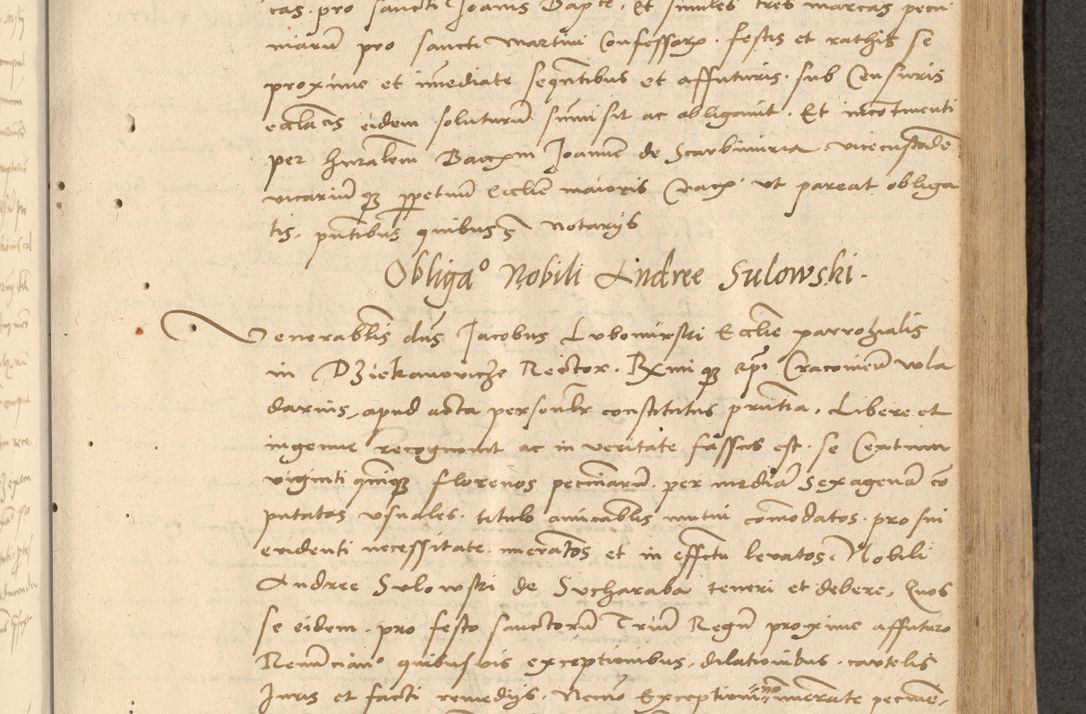 cas. pro sancti Joanis Bapte. Et similes tres marcas pecu
niarū pro sancti Martini Confessorꝫ. festis et rathis se
proxime et imediate seqūtibus et affuturis. sub Censuris
ecclācis eidem soluturū submisit ac obligavit. Et incōtinenti
per Joanē de Scarbimiria vicecustodē
vicariūqꝫ ꝑpetuū Ecclīe maioris Cracꝫ. ut pareat obliga
tis. pn̄tibus quibus notarijs
Obligaᵒ Nobili Andree Sulowski.
Venerablīs dn̄s Jacobus Lubomirski Ecclīe parrochialis
in Dziekanoviche Rector. Rxmiqꝫ epī Cracovien̄ vola
darius, apud acta personlr constitutus pn̄tia. Libere et
ingenue recognovit ac in veritate fassus est. se Centum
viginti quīqꝫ florenos pecuniarū. per mediā sexagenā cō
putatos usuales. titulo amicablīs mutui cōmodatos. pro sui
evidenti necessitate. nūeratos et in effectu levatos. Nobili
Andree Sulowski de Sucharaba teneri et debere. Quos
se eidem. pro festo sanctorū Triū Regū proxime affuturo
Renūcianᵒ quibusvis exceptionibus. dilationibus. cautelis
Juris et facti remedijs. Necnō Exceptioni nō nūerate pecunie.